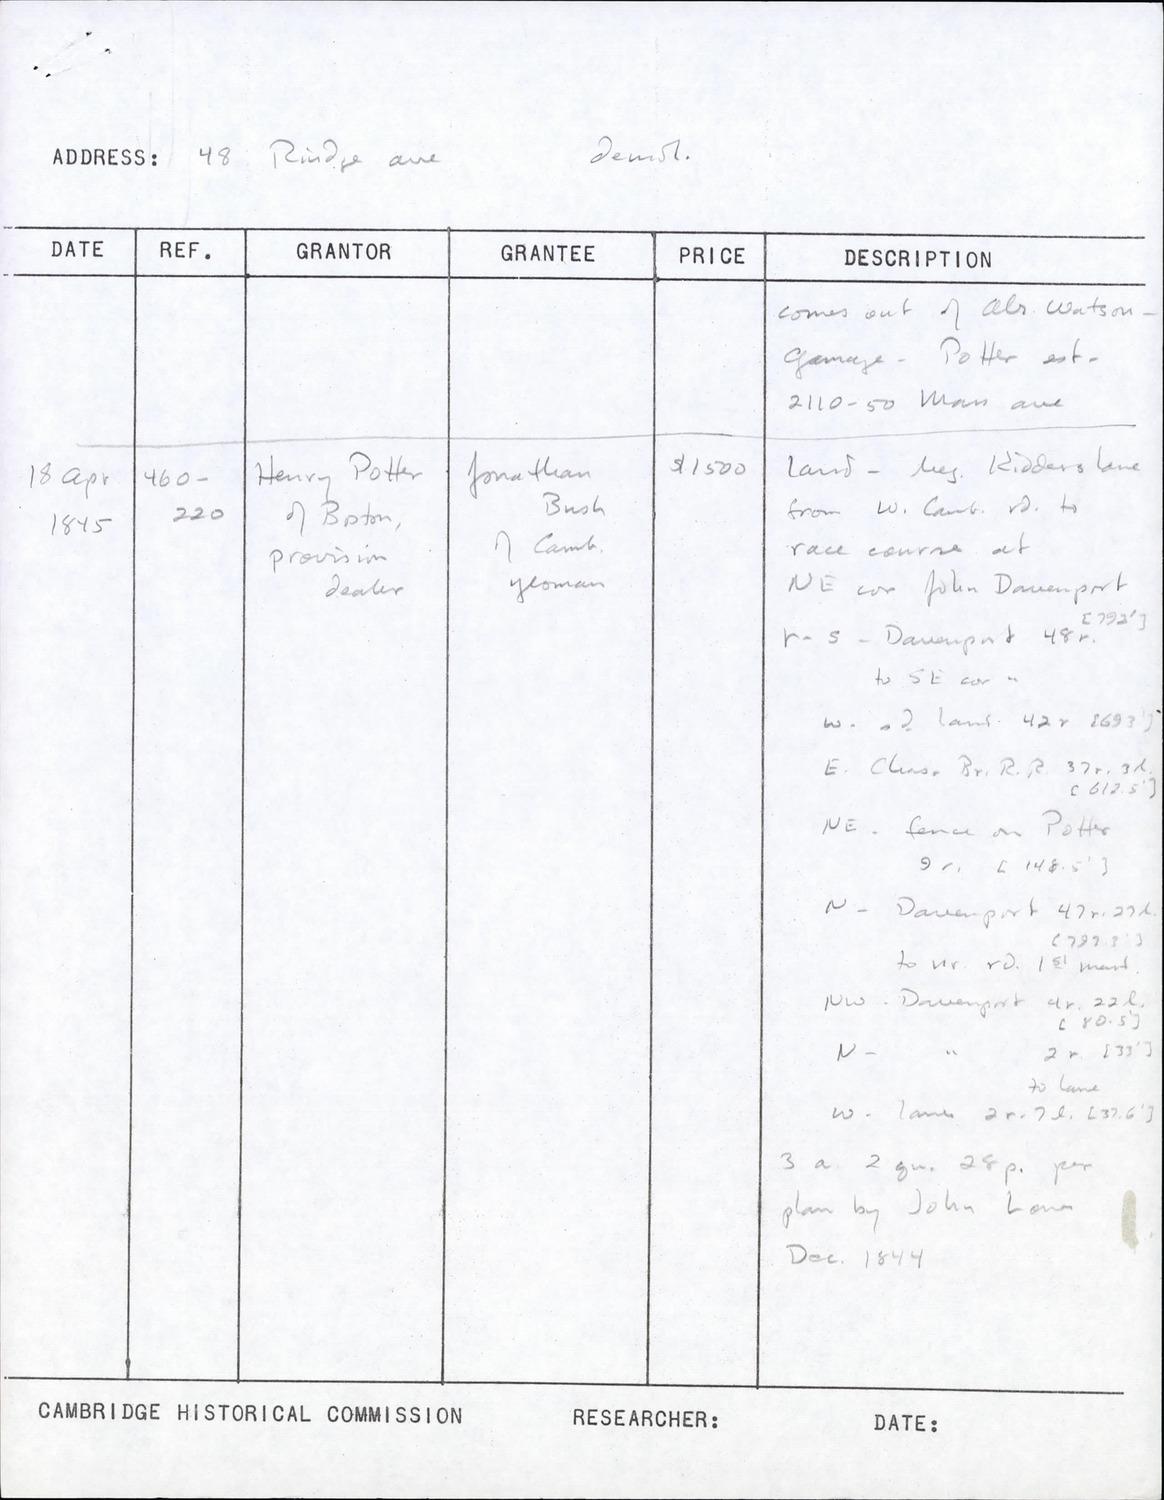 ADDRESS: 48 Rindge ave demol.
DATE REF. GRANTOR GRANTEE PRICE DESCRIPTION
comes out of Abr. Watson -
Gamage - Potter est -
2110-50 Mass ave
18 Apr 1845
460-220
Henry Potter
of Boston,
provision
dealer
Jonathan
Bush
of Camb.
yeoman
$1500
land - beg. Kidders lane
from W. Camb. rd. to
race course at
NE cor John Davenport
r - S - Davenport 48 r. [792']
to SE cor "
W. - land 42 r [693']
E. Chas. Br. R.R. 37 r. 3 l.
[612.5']
NE - fence on Potter
9 r. [148.5']
N - Davenport 47 r. 27 l.
to rd. 1st ment.
NW - Davenport 4 r. 22 l.
[80.5']
N - " 2 r. [33']
to lane
W - lane 2 r. 7 l. [37.6']
3 a. 2 qu. 28 p. per
plan by John
Dec. 1844
CAMBRIDGE HISTORICAL COMMISSION RESEARCHER: DATE: